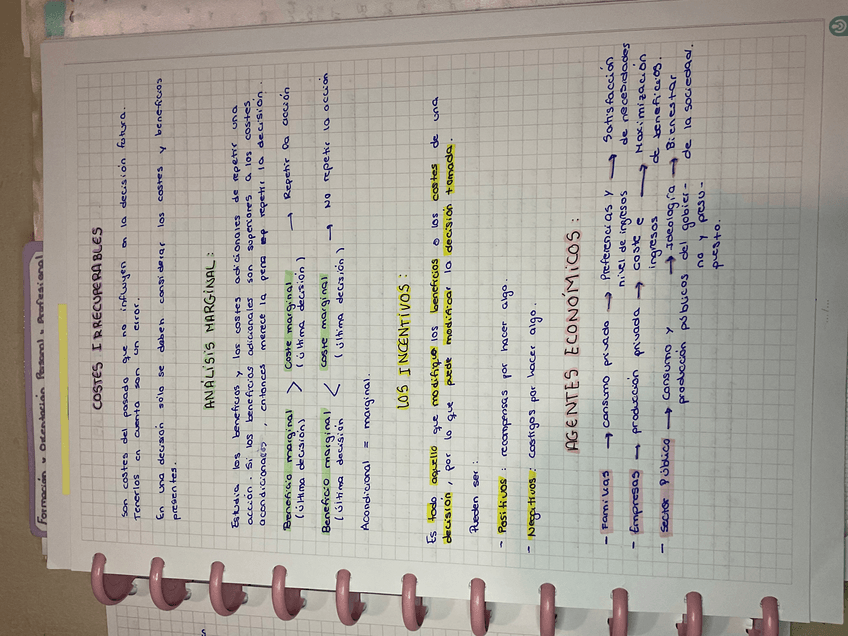 Formación y Orientación Personal y Profesional
COSTES IRRECUPERABLES
Son costes del pasado que no influyen en la decisión futura.
Tenerlos en cuenta son un error.
En una decisión sólo se deben considerar los costes y beneficios
presentes.
ANÁLISIS MARGINAL:
Estudia los beneficios y los costes adicionales de repetir una
acción. Si los beneficios adicionales son superiores a los costes
acondicionales, entonces merece la pena repetir la decisión.
Beneficio marginal > Coste marginal → Repetir la acción
(última decisión) (última decisión)
Beneficio marginal < Coste marginal → No repetir la acción
(última decisión) (última decisión)
Acondicional = marginal.
LOS INCENTIVOS:
Es todo aquello que modifique los beneficios o los costes de una
decisión, por lo que puede modificar la decisión tomada.
Pueden ser:
- Positivos: recompensas por hacer algo.
- Negativos: castigos por hacer algo.
AGENTES ECONÓMICOS:
- Familias → consumo privado → Preferencias y → Satisfacción
nivel de ingresos de necesidades
- Empresas → producción privada → coste e → Maximización
ingresos de beneficios.
- Sector Público → Consumo y → Ideología → Bienestar
producción públicos del gobier- de la sociedad.
no y presu-
puesto.